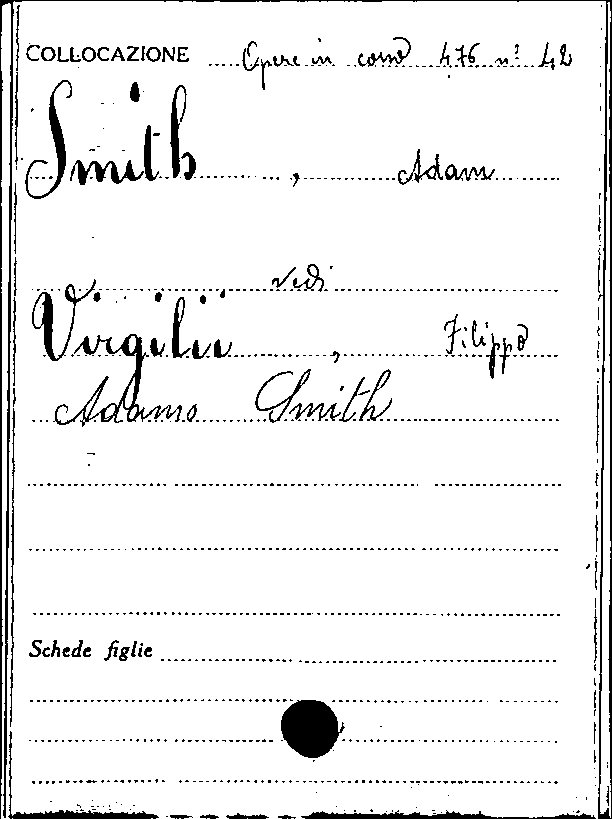 COLLOCAZIONE Opere in corso 476 n° 42
Smith, Adam
vedi
Virgilii, Filippo
Adamo Smith
Schede figlie